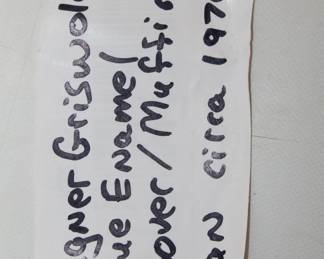 gner Griswol
ue Enamel
over / Muffi
an circa 197